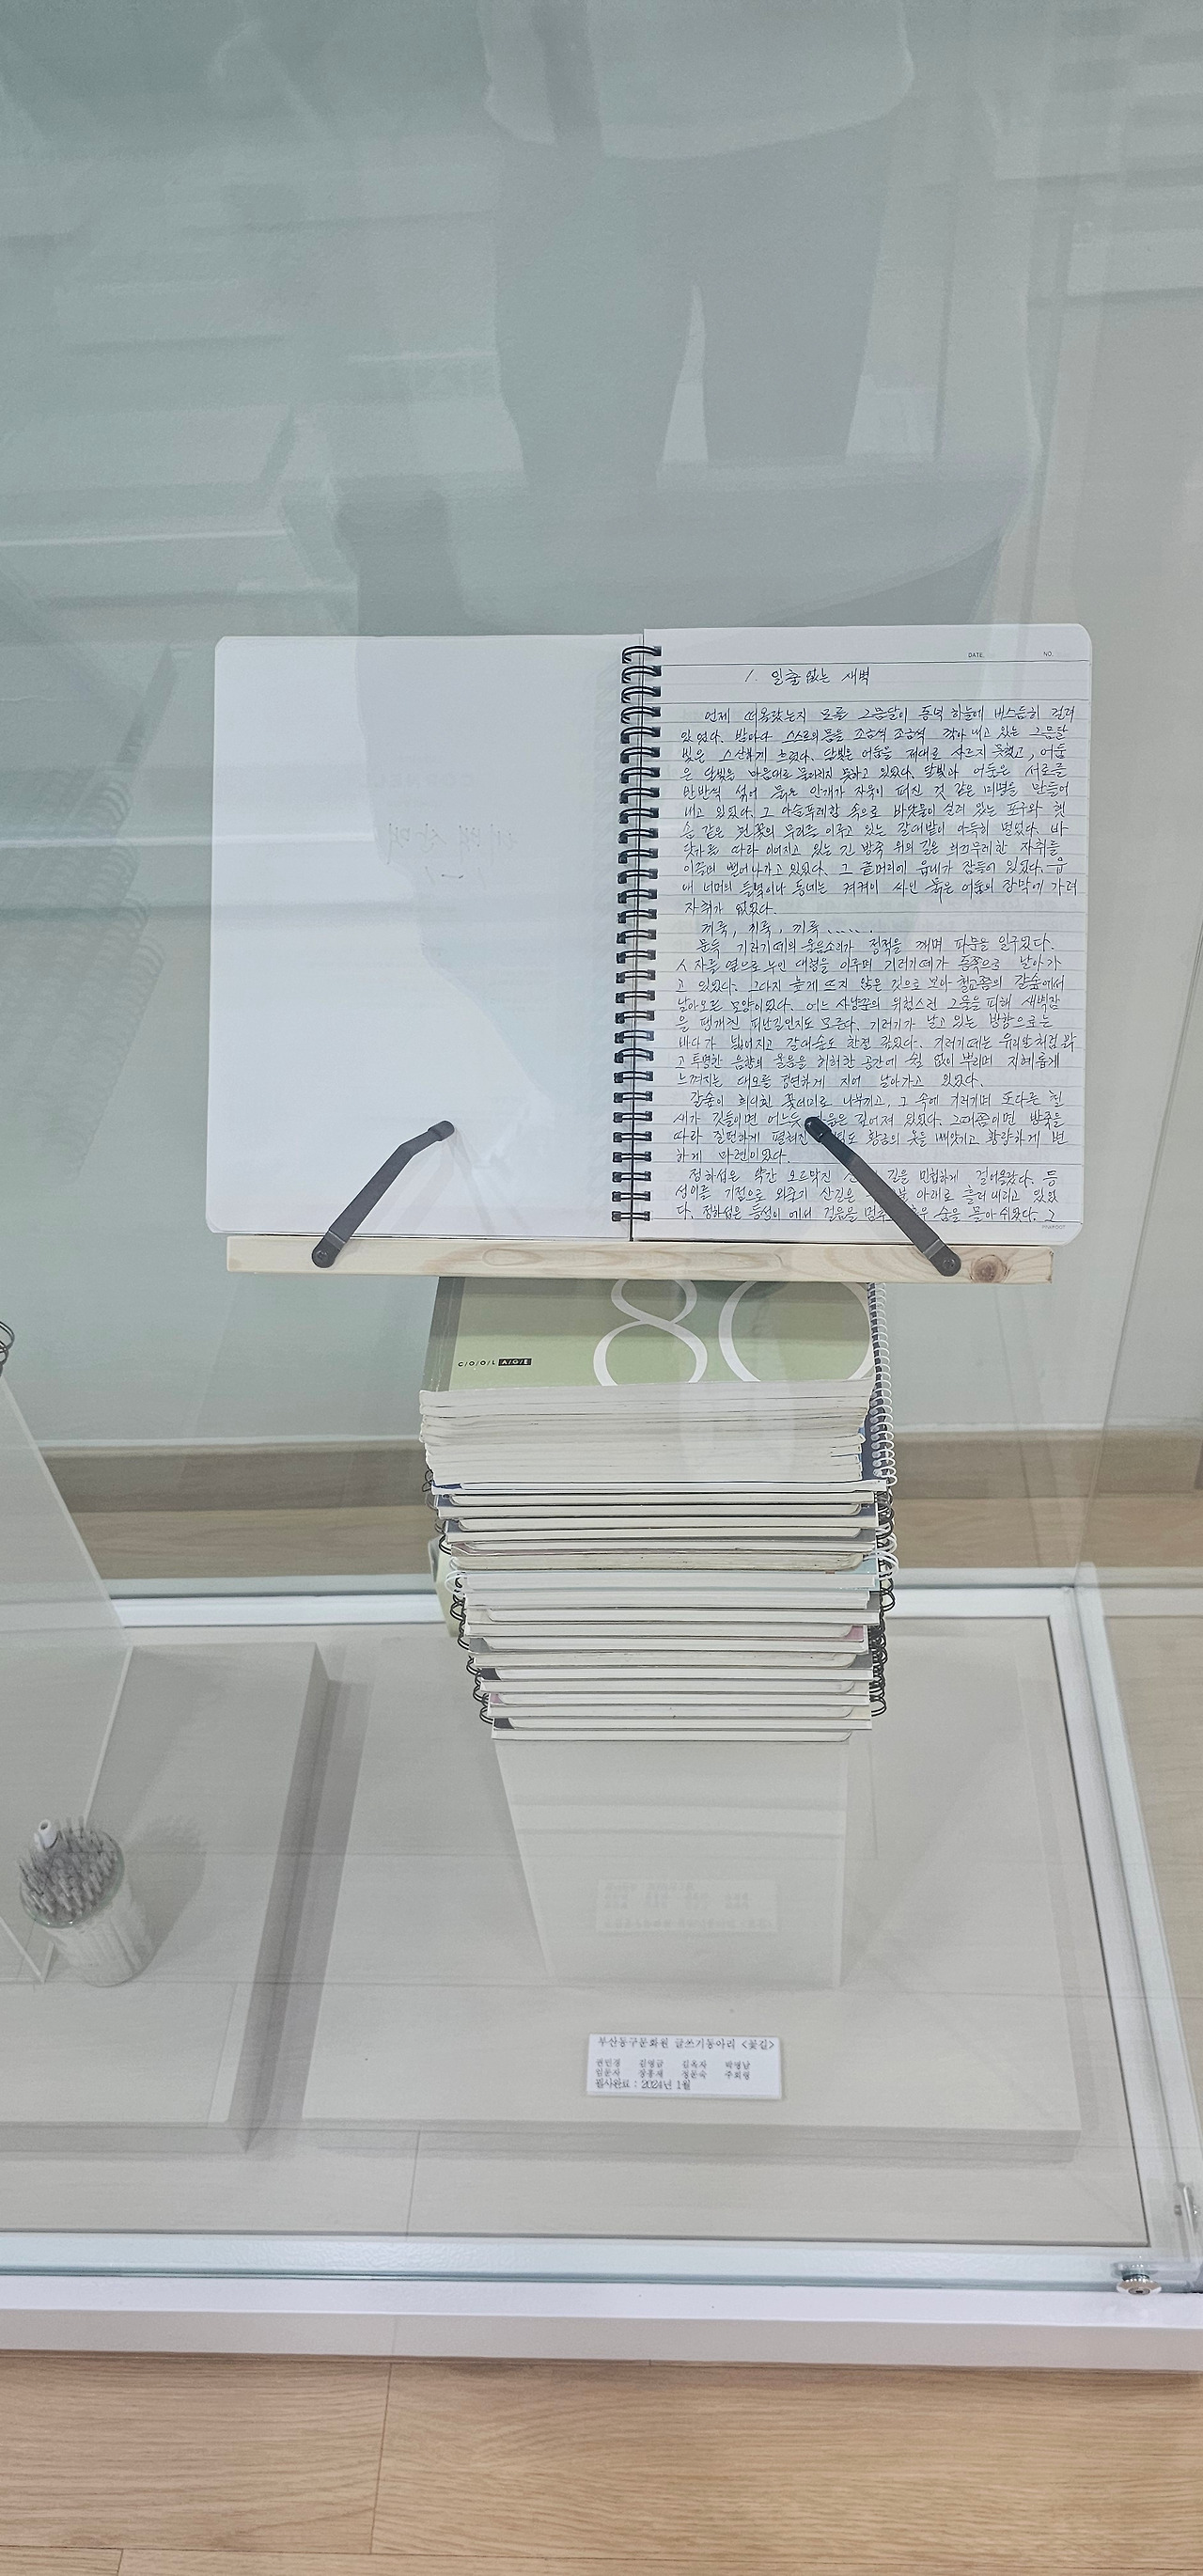 DATE. NO.
1. 일출없는 새벽
언제 떠올랐는지 모를 그믐달이 동녘 하늘에 비스듬히 걸려
있었다. 밤마다 스스로의 몸을 조금씩 조금씩 깎아 내고 있는 그믐달
빛은 스산하게 흐렸다. 달빛은 어둠을 제대로 사르지 못했고, 어둠
은 달빛을 마음대로 물어치지 못하고 있었다. 달빛과 어둠은 서로를
반반씩 섞어 묽은 안개가 자욱이 퍼진 것 같은 미명을 만들어
내고 있었다. 그 아슴푸레함 속으로 바닷물이 실려 있는 포구와 햇
솜 같은 흰 꽃의 무리를 이루고 있는 갈대밭이 아득히 멀었다. 바
닷가를 따라 이어지고 있는 긴 방죽 위의 길은 희끄무레한 자취를
이끌며 뻗어나가고 있었다. 그 끝머리에 읍내가 잠들어 있었다. 읍
내 너머의 들녘이나 동네는 켜켜이 싸인 묽은 어둠의 장막에 가려
자취가 없었다.
끼룩, 끼룩, 끼룩......
문득 기러기떼의 울음소리가 정적을 깨며 파문을 일구었다.
人자를 옆으로 누인 대형을 이루며 기러기떼가 동쪽으로 날아가
고 있었다. 그다지 높게 뜨지 않은 것으로 보아 철교쯤의 갈숲에서
날아오른 모양이었다. 어느 사냥꾼의 위험스런 그물을 피해 새벽잠
을 팽개친 피난길인지도 모른다. 기러기가 날고 있는 방향으로는
바다가 넓어지고 갈대숲도 한결 깊었다. 기러기떼는 유리알처럼 맑
고 투명한 음향의 울음을 허허한 공간에 쉴 없이 뿌리며 지혜롭게
느껴지는 대오를 정연하게 지어 날아가고 있었다.
갈숲이 희디흰 꽃더미로 나부끼고, 그 속에 기러기며 또다른 철
새가 깃들이면 어느듯 은 깊어져 있었다. 그때쯤이면 방죽을
따라 질펀하게 펼쳐진 도 황금의 옷을 빼앗기고 황량하게 변
하게 마련이었다.
정하섭은 약간 오르막진 길을 민첩하게 걸어올랐다. 등
성이를 기점으로 외줄기 산길은 아래로 흘러내리고 있었
다. 정하섭은 등성이에서 걸음을 멈추 숨을 몰아쉬었다. 그
80
C/O/O/L A/G/E
부산동구문화원 글쓰기동아리 <꽃길>
권민경 김영금 김옥자 박영남
임문자 장홍재 정문숙 주희령
필사완료 : 2024년 1월